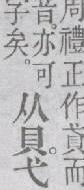 周禮正作貣而
音亦可
字矣。
从貝。弋